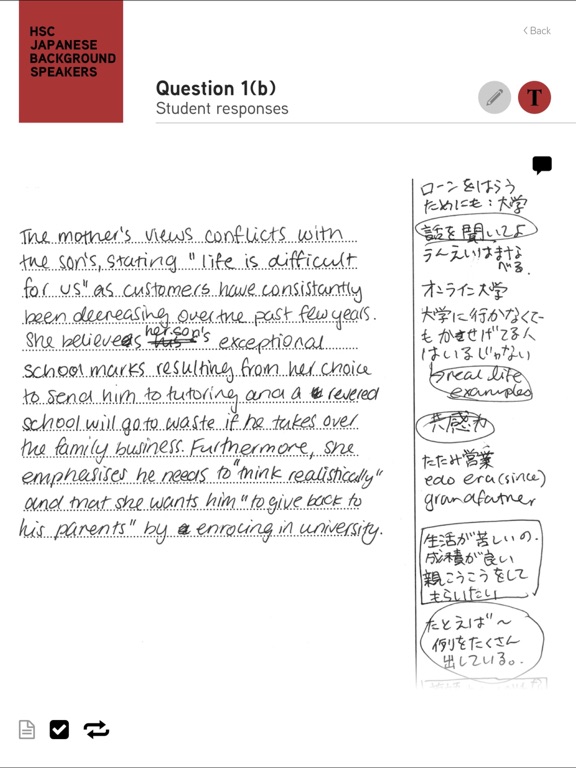 HSC
JAPANESE
BACKGROUND
SPEAKERS
< Back
Question 1(b)
Student responses
T
The mother's views conflicts with
the son's, stating "life is difficult
for us" as customers have consistantly
been decreasing over the past few years.
She believes her son's exceptional
school marks resulting from her choice
to send him to tutoring and a revered
school will go to waste if he takes over
the family business. Furthermore, she
emphasises he needs to "think realistically"
and that she wants him "to give back to
his parents" by enrolling in university.
ローンをはらう
ためにも:大学
話を聞いてよ
うんえいはまな
べる.
オンライン大学
大学に行かなくて
もかせげてる人
はいるじゃない
real life
examples
共感力
たたみ営業
edo era (since)
grandfather
生活が苦しいの.
成積が良い
親こうこうをして
もらいたい
たとえば~
例をたくさん
出している。